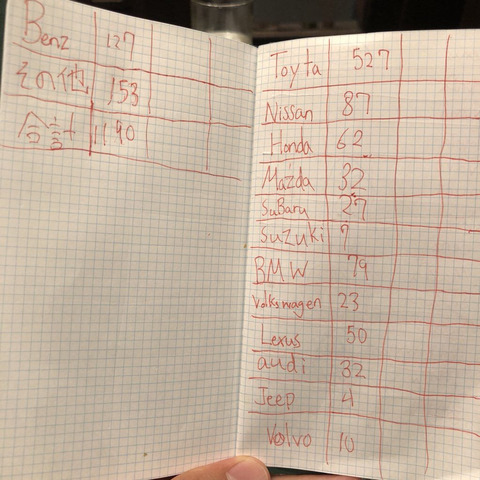 Benz 127
その他 153
合計 1190
Toyta 527
Nissan 87
Honda 62
Mazda 32
SuBaru 27
Suzuki 7
BMW 79
Volkswagen 23
Lexus 50
audi 32
Jeep 4
Volvo 10